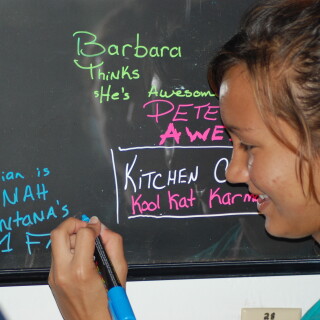 Barbara
Thinks
sHe's Awesom
PETE
AWE
KITCHEN C
Kool Kat Karm
ian is
NAH
ntana's
1 FA
28